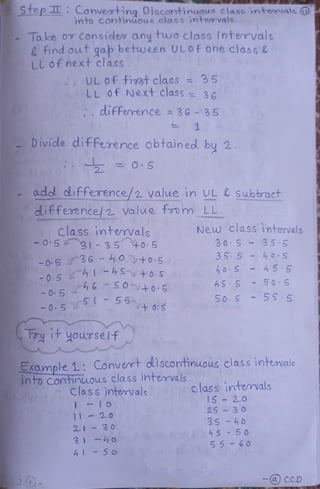 Step II : Converting Discontinuous class intervals
into continuous class intervals
- Take or consider any two class intervals
& find out gap between UL of one class &
LL of next class.
∴ UL of first class = 35
LL of Next class = 36
∴ difference = 36 - 35
= 1
- Divide difference obtained by 2.
∴ 1/2 = 0.5
- add difference/2 value in UL & subtract
difference/2 value from LL.
Class intervals New class intervals
-0.5 31 - 35 +0.5 30.5 - 35.5
-0.5 36 - 40 +0.5 35.5 - 40.5
-0.5 41 - 45 +0.5 40.5 - 45.5
-0.5 46 - 50 +0.5 45.5 - 50.5
-0.5 51 - 55 +0.5 50.5 - 55.5
Try it yourself
Example 1: Convert discontinuous class intervals
into continuous class intervals.
Class intervals class intervals
1 - 10 15 - 20
11 - 20 25 - 30
21 - 30 35 - 40
31 - 40 45 - 50
41 - 50 55 - 60
-@ CCD